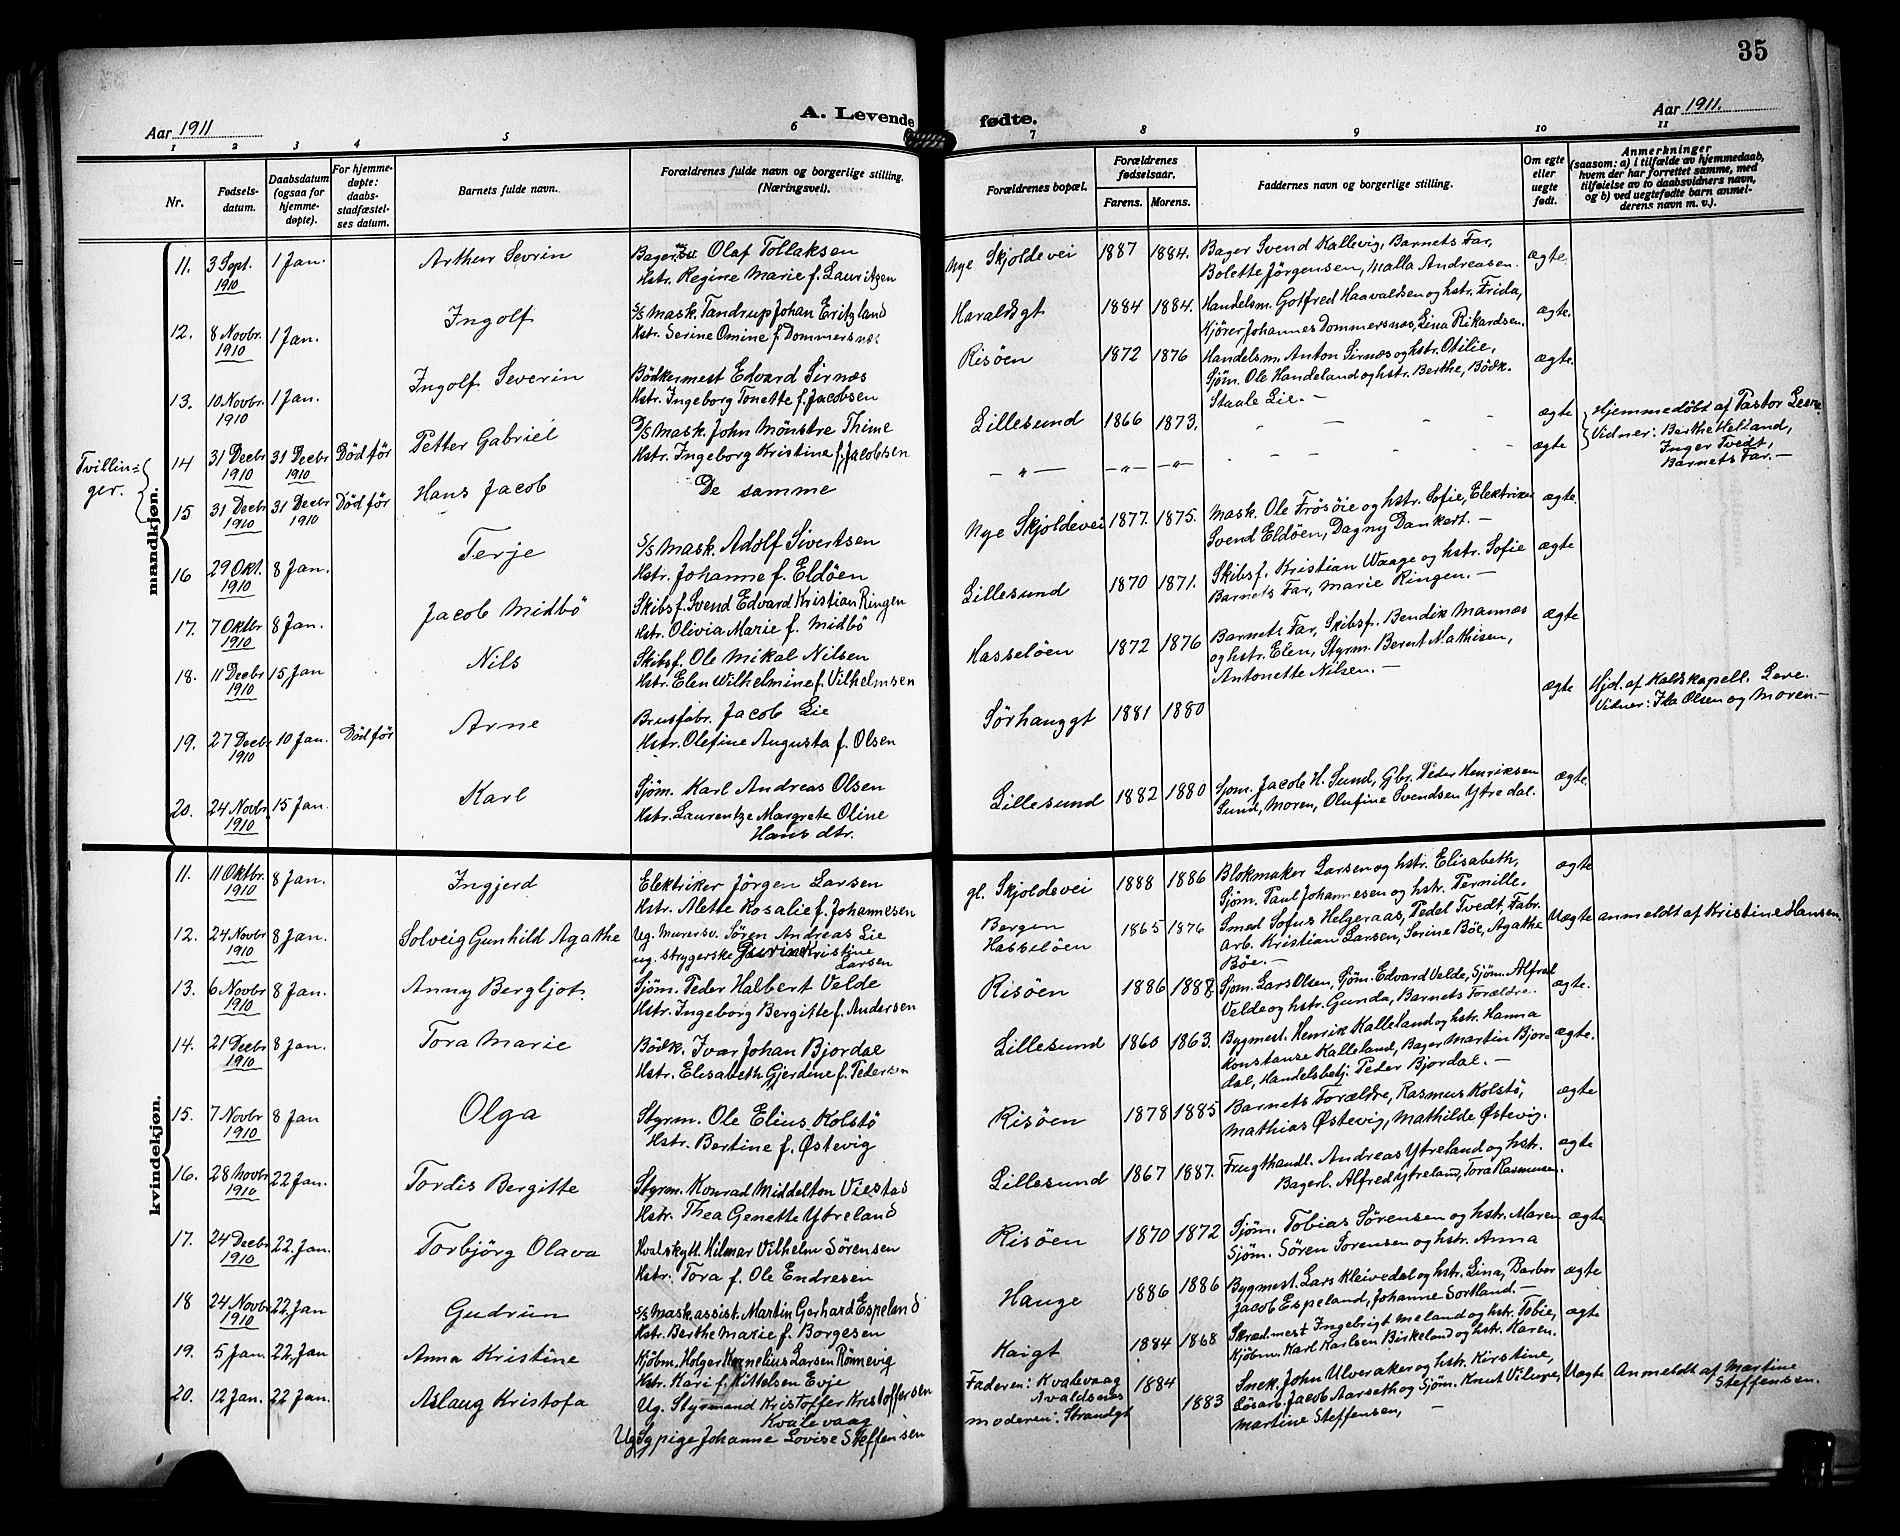 35
Aar 1911
A. Levende
fødte.
Aar 1911.
1 2 3 4 5 6 7 8 9 10 11
Nr.
Fødsels-
datum.
Daabsdatum
(ogsaa for
hjemme-
døpte).
For hjemme-
døpte:
daabs-
stadfæstel-
ses datum.
Barnets fulde navn.
Forældrenes fulde navn og borgerlige stilling.
(Næringsvei).
Forældrenes bopæl.
Forældrenes
fødselsaar.
Farens. Morens.
Faddernes navn og borgerlige stilling.
Om egte
eller
uegte
født.
Anmerkninger
(saasom: a) i tilfælde av hjemmedaab,
hvem der har forrettet samme, med
tilføielse av to daabsvidners navn,
og b) ved uegtefødte barn anmel-
derens navn m. v.).
mandkjøn.
11. 3 Sept. 1910 1 Jan. Arthur Severin Bagersv. Olaf Tollaksen Nye Skjoldevei 1887 1884. Bager Svend Kallevig, Barnets Far, ægte
Hstr. Regine Marie f. Lauritzen Bolette Jörgensen, Malla Andreasen.
12. 8 Novbr. 1910 1 Jan. Ingolf S/S Mask. Tandrup Johan Eritzland Haraldsgt 1884 1884. Handelsm. Gotfred Haavaldsen og hstr. Frida, ægte.
Hstr. Serine Omine f. Dommersnæs Kjörer Johannes Dommersnæs, Lina Rikardsen.
13. 10 Novbr. 1910 1 Jan. Ingolf Severin Bödkermest Edvard Sirnæs Risöen 1872 1876 Handelsm. Anton Sirnæs og hstr. Otilie, ægte.
Hstr. Ingeborg Tonette f. Jacobsen Sjöm. Ole Handeland og hstr. Berthe, Bödk.
Staale Lie. —
Tvillin=
ger.
14 31 Decbr 1910 31 Decbr 1910 Död för Petter Gabriel D/S Mask. John Mönstre Thime Lillesund 1866 1873. ægte Hjemmedöbt af Pastor Leere
Hstr. Ingeborg Kristina f. Jacobsen Vidner: Berthe Helland,
Inger Tvedt,
Barnets Far. —
15 31 Decbr 1910 31 Decbr 1910 Död för Hans Jacob De samme — " — — " — — " — ægte
16 29 Okt. 1910 8 Jan. Terje S/S Mask. Adolf Sivertsen Nye Skjoldevei 1877. 1875. Mask. Ole Frösöie og hstr. Sofie, Elektriker ægte
Hstr. Johanne f. Eldöen Svend Eldöen, Dagny Dankert. —
17. 7 Oktbr 1910 8 Jan. Jacob Midbö Skibsf. Svend Edvard Kristian Ringen Lillesund 1870 1871. Skibsf. Kristian Waage og hstr. Sofie ægte
Hstr. Olivia Marie f. Midbö Barnets Far, Marie Ringen. —
18. 11 Decbr 1910 15 Jan Nils Skibsf. Ole Mikal Nilsen Hasselöen 1872 1876 Barnets Far, Skibsf. Bendik Mannæs ægte
Hstr. Elen Wilhelmine f. Vilhelmsen og hstr. Elen, Styrm. Bernt Mathisen,
Antonette Nilsen. —
19. 27 Decbr 1910 10 Jan. Död för Arne Brusfabr. Jacob Lie Sörhauggt 1881 1880 ægte Hjd. af Kaldskapell. Leve.
Hstr. Olefine Augusta f. Olsen Vidner: Ida Olsen og Moren. —
20. 24 Novbr. 1910 15 Jan. Karl Sjöm. Karl Andreas Olsen Lillesund 1882 1880 Sjöm. Jacob H. Sund, Gbr. Peder Henriksen ægte
Hstr. Laurentze Margrete Oline Sund, Moren, Olufine Svendsen Ytredal.
Hans dtr.
kvindekjøn.
11. 11 Oktbr. 1910 8 Jan. Ingjerd Elektriker Jörgen Larsen gl. Skjoldevei 1888 1886 Blokmaker Larsen og hstr. Elisabeth, ægte
Hstr. Alette Rosalie f. Johannesen Sjöm. Paul Johannesen og hstr. Pernille.
12. 24 Novbr 1910 8 Jan. Solveig Gunhild Agathe Ug. Murersv. Sören Andreas Lie Bergen 1865 1876 Smed Sofus Helgeraas, Pedel Tvedt, Fabr. Uægte anmeldt af Kristine Hansen.
ug. strygerske Gurine Kristine Hasselöen arb. Kristian Larsen, Serine Böe, Agathe
Larsen Böe. —
13. 6 Novbr 1910 8 Jan. Anny Bergljot Sjöm. Peder Halbert Velde Risöen 1886 1888 Sjöm. Lars Olsen, Sjöm. Edvard Velde, Sjöm. Alfred ægte.
Hstr. Ingeborg Bergitte f. Andersen Velde og hstr. Gunda, Barnets Forældre.
14. 21 Decbr 1910 8 Jan. Tora Marie Bödk. Ivar Johan Bjordal Lillesund 1860 1863. Bygmest. Henrik Kalleland og hstr. Hanna ægte.
Hstr. Elisabeth Gjerdine f. Pedersen Konstanse Kalleland, Bager Martin Bjor-
dal, Handelsbetj. Peder Bjordal. —
15. 7 Novbr 1910 8 Jan Olga Styrm. Ole Elius Kolstö Risöen 1878 1885 Barnets Forældre, Rasmus Kolstö, ægte
Hstr. Bertine f. Østevig Mathias Østevig, Mathilde Østevig.
16. 28 Novbr 1910 22 Jan. Tordis Bergitte Styrm. Konrad Middelton Viestad Lillesund 1867 1887. Frugthandl. Andreas Ytreland og hstr. ægte
Hstr. Thea Genette Ytreland Bagerl. Alfred Ytreland, Tora Rasmusen.
17. 24 Decbr 1910 22. Jan. Torbjörg Olava Hvalskytt. Hilmar Vilhelm Sörensen Risöen 1870 1872 Sjöm. Tobias Sörensen og hstr. Maren ægte
Hstr. Tora f. Ole Endresen Sjöm. Sören Sorensen og hstr. Anna
18 24 Novbr 1910 22, Jan Gudrun S/S Mask.assist. Martin Gerhard Espeland Hauge 1886 1886 Bygmest. Lars Kleivedal og hstr. Lina, Barber ægte
Hstr. Berthe Marie f. Borgesen Jacob Espeland, Johanne Sortland. —
19. 5 Jan. 22, Jan Anna Kristine Kjöbm. Holger Kornelius Larsen Rönnevig Haigt 1884 1868 Skræd.mest Ingebrigt Meland og hstr. Tobie, ægte
Hstr. Kari f. Kittelsen Evje Kjöbm. Karl Karlsen Birkeland og hstr. Karen.
20. 12 Jan. 22 Jan. Aslaug Kristofa Ug. Styrmand Kristoffer Kristoffersen Faderen: Kvalevaag 1884 Snek. John Ulveraker og hstr. Kirstine, Uægte Anmeldt af Martine
Kvalevaag Avaldsnes 1883 Lösarb. Jacob Aarseth og Sjöm. Knut Vilurpe, Steffensen.
Ug. Sypige Johanne Lovise Steffensen Moderen: Strandgt Martine Steffensen, —